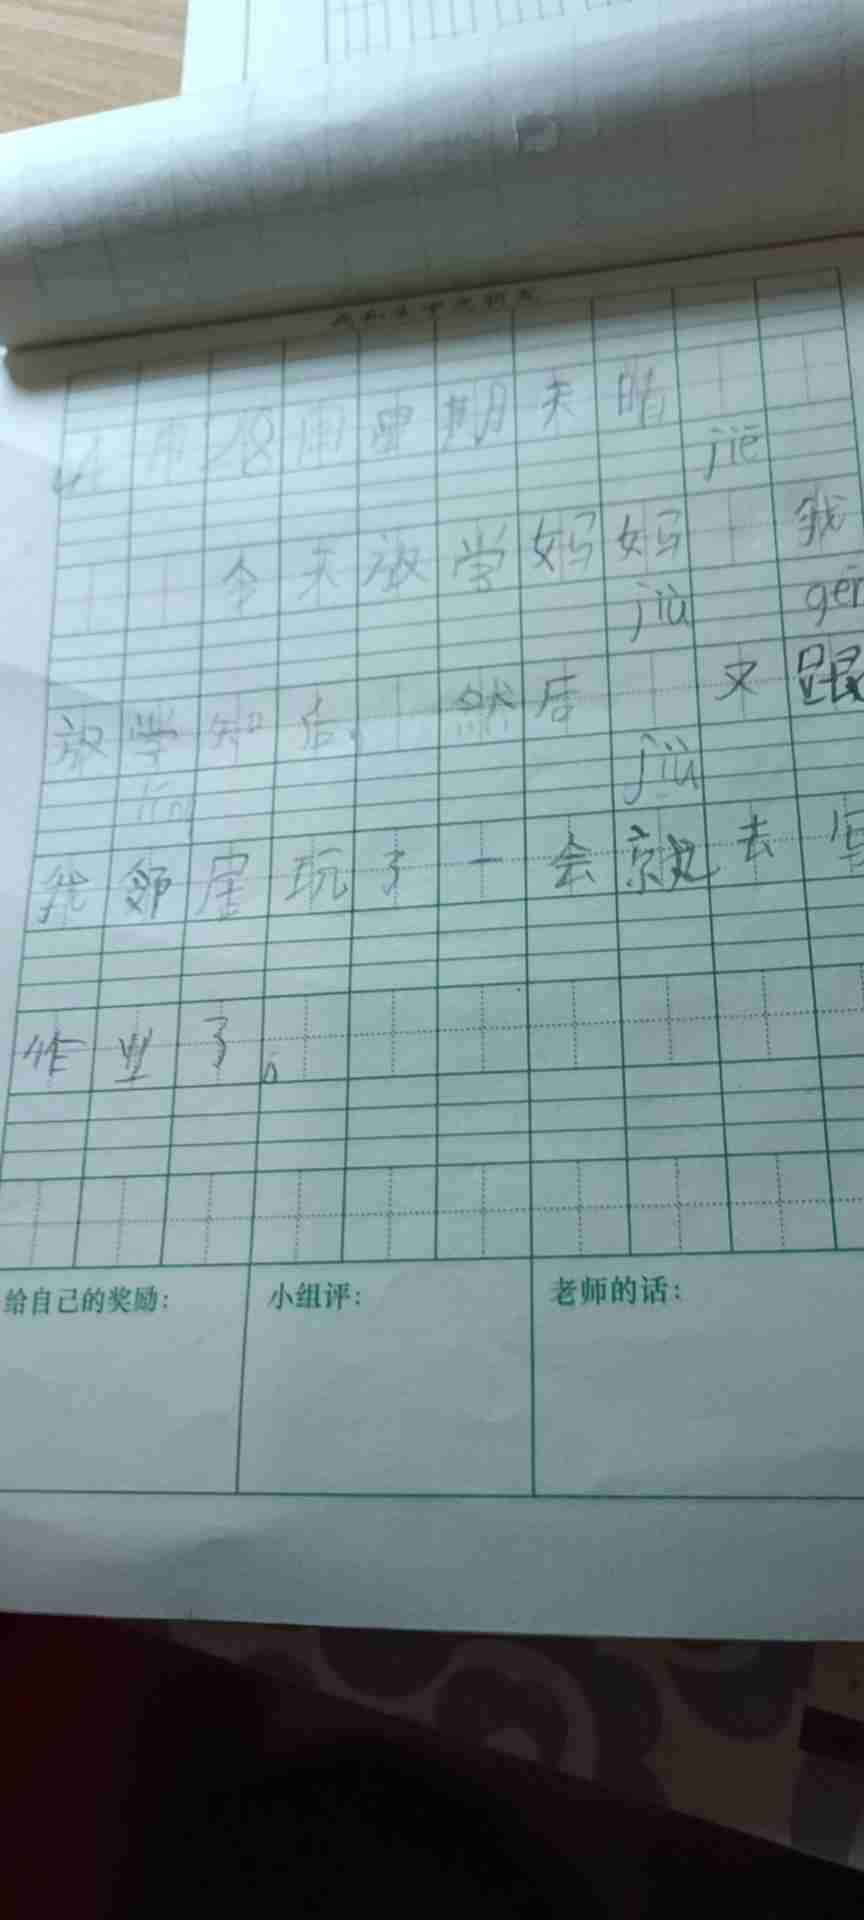 4月28日星期天晴
jiē
今天放学妈妈 我
jiù gēn
放学知后。然后 又跟
lín jiù
我邻居玩了一会就去写
作业了。
给自己的奖励：
小组评：
老师的话：